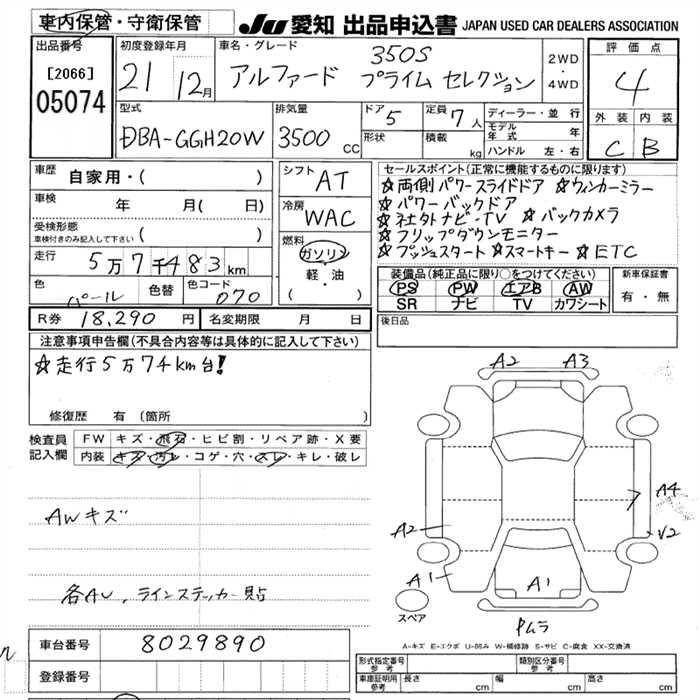 車内保管・守衛保管
JU 愛知 出品申込書 JAPAN USED CAR DEALERS ASSOCIATION
出品番号
[2066]
05074
初度登録年月
21 12月
車名・グレード
350S
アルファード プライム セレクション
2WD
・
4WD
評価点
4
外装 内装
C B
型式
DBA-GGH20W
排気量
3500 cc
ドア 5
形状
定員 7人
積載 kg
ディーラー・並行
モデル年式 年
ハンドル 左・右
車歴
自家用・( )
車検
年 月( 日)
受検形態
車検付きのみ記入して下さい ( )
走行
5万7千483km
色
パール
色替
色コード
070
シフト
AT
冷房
WAC
燃料
ガソリン
軽・油
( )
セールスポイント(正常に機能するものに限ります)
☆両側パワースライドドア ☆ウィンカーミラー
☆パワーバックドア
☆社外ナビ・TV ☆バックカメラ
☆フリップダウンモニター
☆プッシュスタート ☆スマートキー ☆ETC
装備品(純正品に限り○をつけてください)
PS PW エアB AW
SR ナビ TV カワシート
新車保証書
有・無
R券 18,290円
名変期限 月 日
後日品
注意事項申告欄(不具合内容等は具体的に記入して下さい)
☆走行5万74km台!
修復歴 有(箇所 )
検査員
記入欄
FW キズ・飛石・ヒビ割・リペア跡・X要
内装 キズ・汚レ・コゲ・穴・スレ・キレ・破レ
AWキズ
各AU、ラインステッカー貼
A2 A3
A4
A2
V2
A1
A1
スペア
Pムラ
A-キズ E-エクボ U-凹み W-補修跡 S-サビ C-腐食 XX-交換済
車台番号 8029890
登録番号
形式指定番号
参考
類別区分番号
参考
車庫証明用
参考
長さ cm 幅 cm 高さ cm